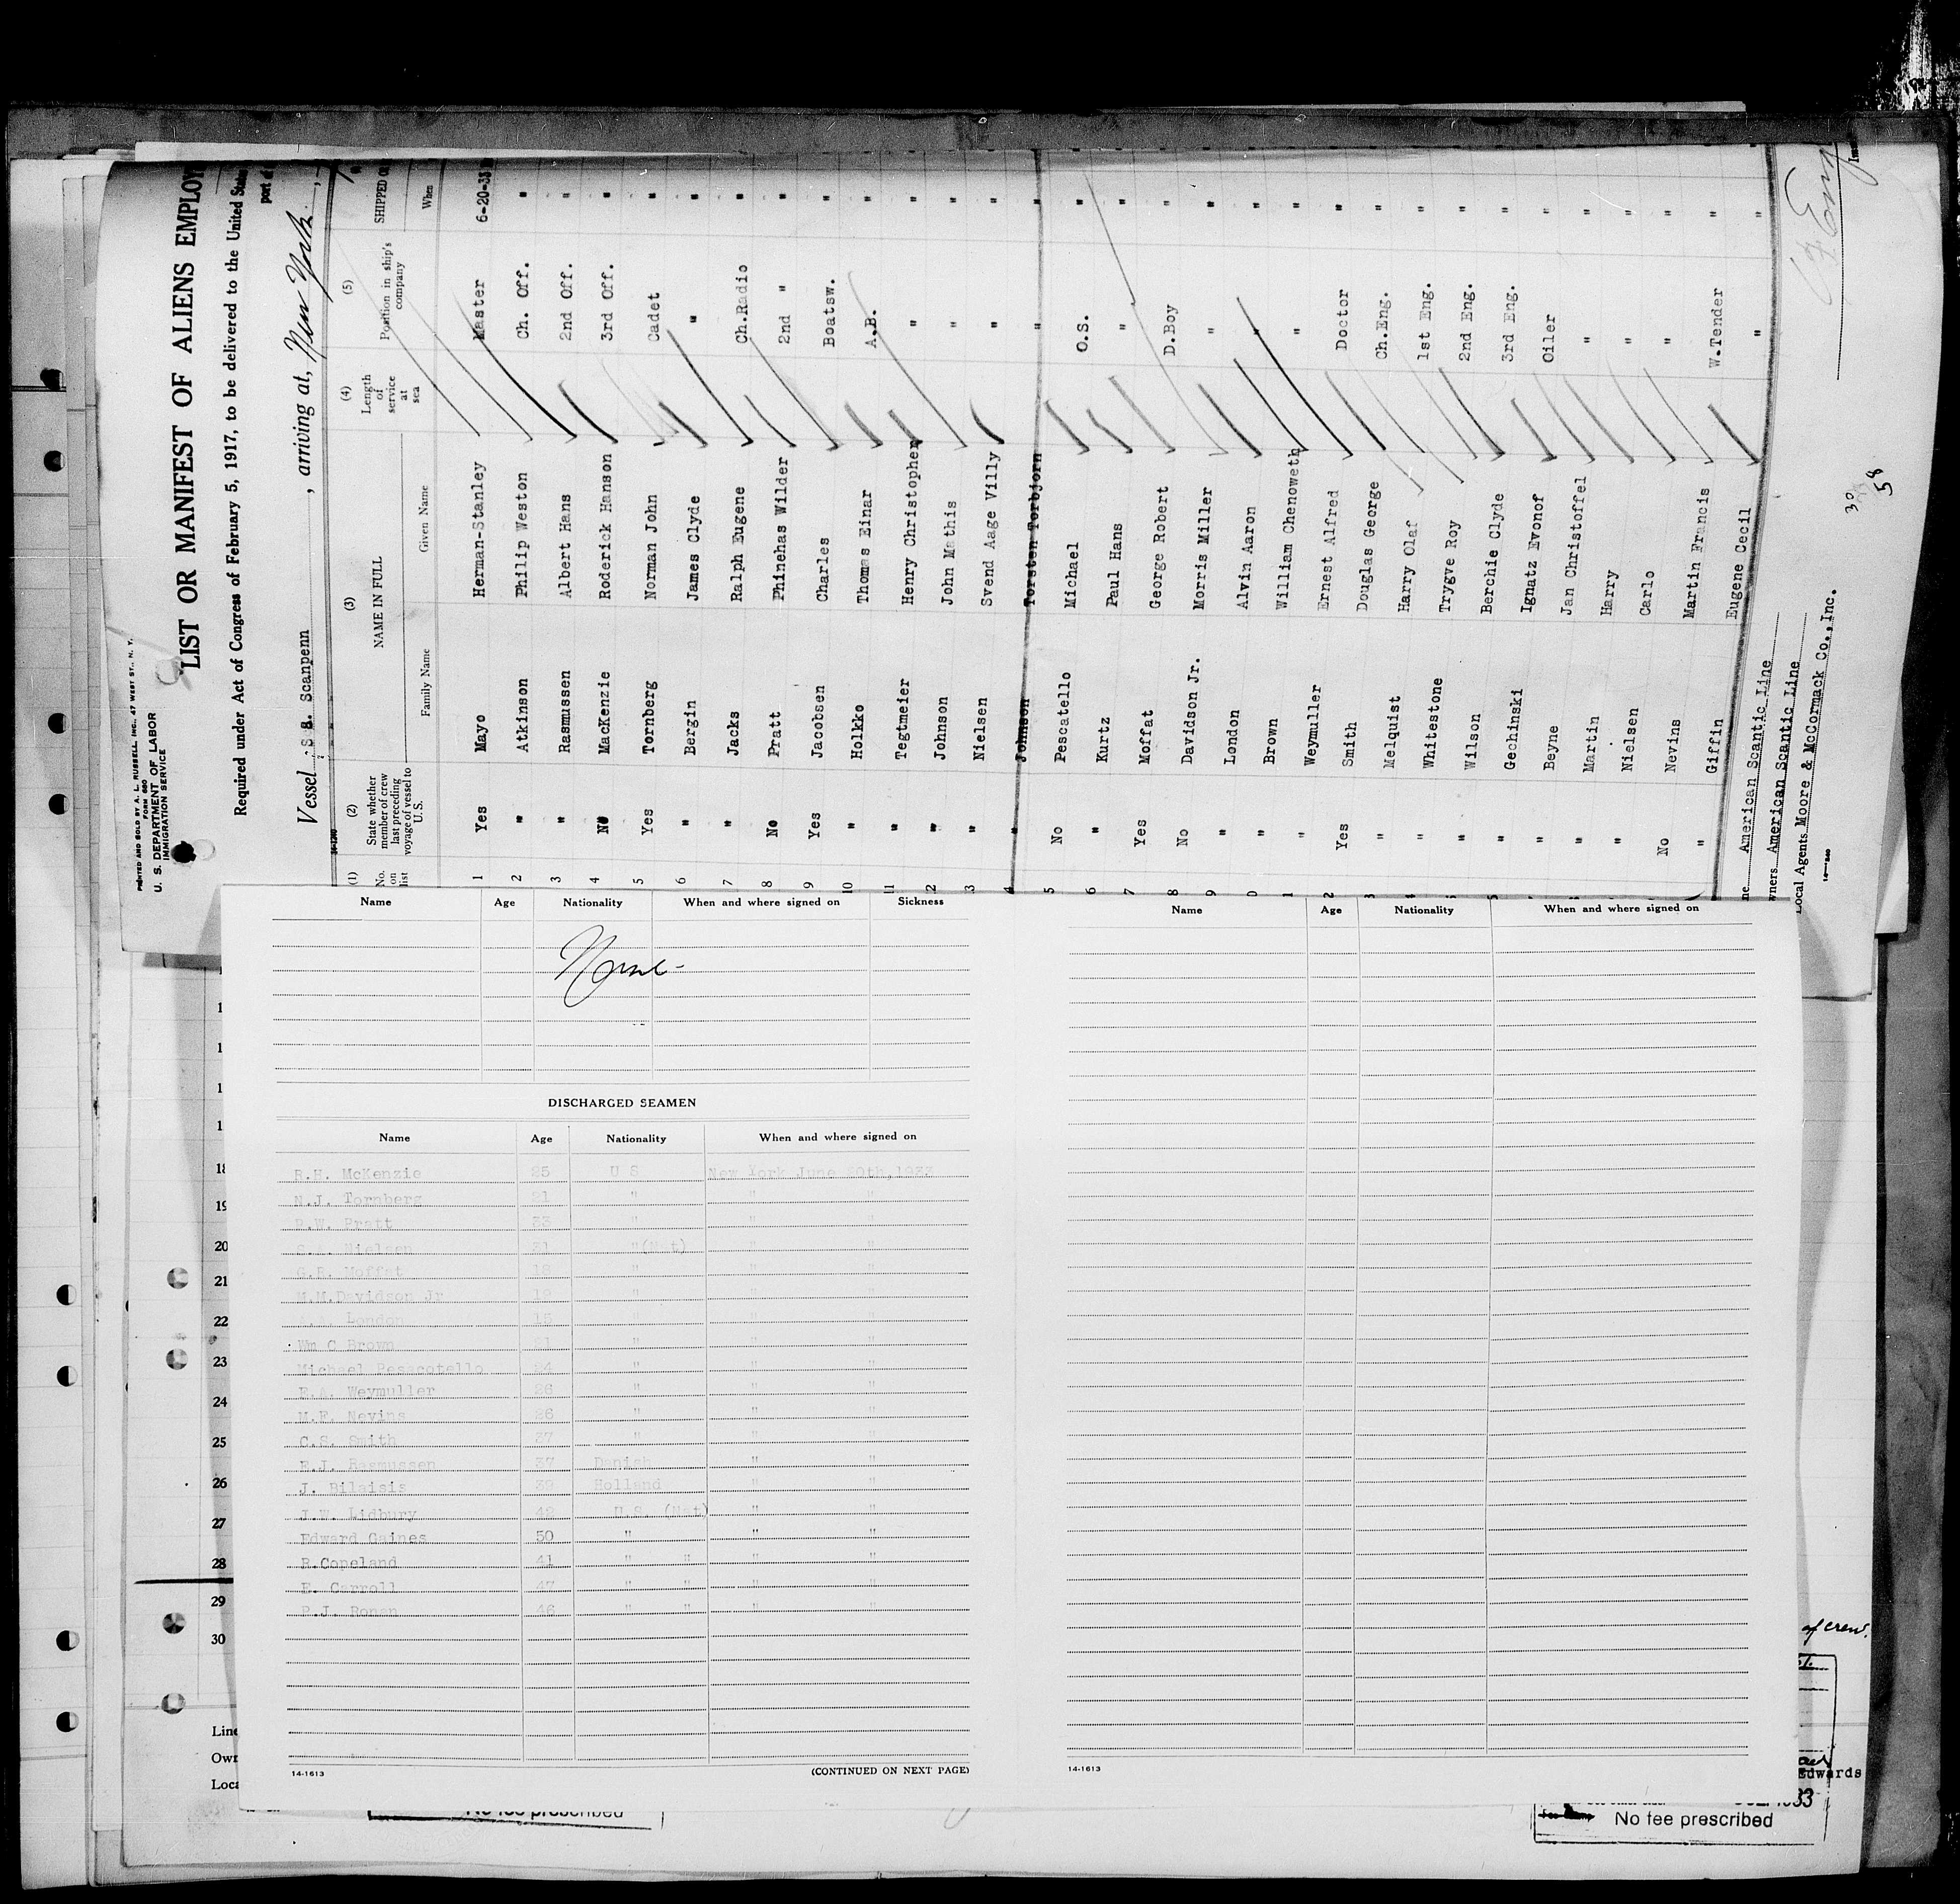 PRINTED AND SOLD BY A. L. RUSSELL, INC., 47 WEST ST., N. Y.
FORM 680
U. S. DEPARTMENT OF LABOR
IMMIGRATION SERVICE
LIST OR MANIFEST OF ALIENS EMPLOY
Required under Act of Congress of February 5, 1917, to be delivered to the United State
port of
Vessel S.S. Scanpenn, arriving at, New York
(1) No. on list (2) State whether member of crew last preceding voyage of vessel to U.S. (3) NAME IN FULL Family Name Given Name (4) Length of service at sea (5) Position in ship's company SHIPPED O When
1 Yes Mayo Herman-Stanley Master 6-20-33
2 " Atkinson Philip Weston Ch. Off. "
3 " Rasmussen Albert Hans 2nd Off. "
4 No MacKenzie Roderick Hanson 3rd Off. "
5 Yes Tornberg Norman John Cadet "
6 " Bergin James Clyde " "
7 " Jacks Ralph Eugene Ch.Radio "
8 No Pratt Phinehas Wilder 2nd " "
9 Yes Jacobsen Charles Boatsw. "
10 " Holkko Thomas Einar A.B. "
11 " Tegtmeier Henry Christopher " "
12 " Johnson John Mathis " "
3 " Nielsen Svend Aage Villy " "
4 " Johnson Torsten Torbjorn " "
5 No Pescatello Michael O.S. "
6 " Kurtz Paul Hans " "
7 Yes Moffat George Robert D.Boy "
8 No Davidson Jr. Morris Miller " "
9 " London Alvin Aaron " "
0 " Brown William Chenoweth " "
1 " Weymuller Ernest Alfred Doctor "
2 Yes Smith Douglas George Ch.Eng. "
3 " Melquist Harry Olaf 1st Eng. "
4 " Whitestone Trygve Roy 2nd Eng. "
5 " Wilson Berchie Clyde 3rd Eng. "
" Gechinski Ignatz Evonof Oiler "
" Beyne Jan Christoffel " "
" Martin Harry " "
" Nielsen Carlo " "
No Nevins Martin Francis W.Tender "
" Giffin Eugene Cecil " "
ne American Scantic Line
wners American Scantic Line
Local Agents Moore & McCormack Co., Inc.
30
58
Name Age Nationality When and where signed on Sickness
None
DISCHARGED SEAMEN
Name Age Nationality When and where signed on
R.H. McKenzie 25 U S New York June 20th, 1933
N.J. Tornberg 21 " " "
P.W. Pratt 33 " " "
Nielsen 31 "(Nat) " "
G.R. Moffat 18 " " "
M.M.Davidson Jr 19 " " "
London 15 " " "
Wm C Brown 21 " " "
Michael Pesacotello 24 " " "
E.A. Weymuller 26 " " "
M.F. Nevins 26 " " "
C.S. Smith 37 " " "
E.J. Rasmussen 37 Danish " "
J. Bilaisis 39 Holland " "
J.W. Lidbury 42 U.S. (Nat) " "
Edward Gaines 50 " " "
R.Copeland 41 " " " "
E. Carroll 47 " " " "
P.J. Ronan 46 " " " "
14-1613 (CONTINUED ON NEXT PAGE)
Name Age Nationality When and where signed on
14-1613
18
19
20
21
22
23
24
25
26
27
28
29
30
Line
Own
Loca
of crew.
Edwards
No fee prescribed
No fee prescribed